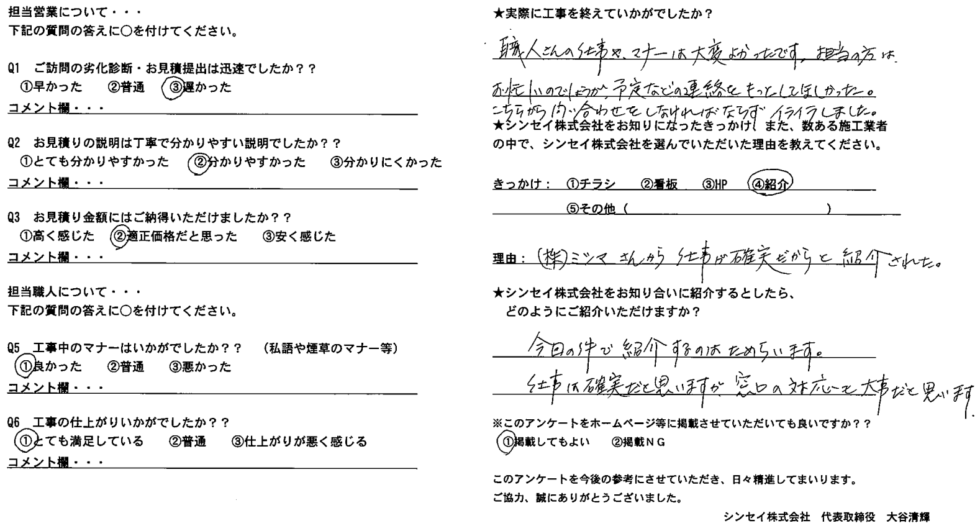 担当営業について・・・
下記の質問の答えに○を付けてください。
Q1 ご訪問の劣化診断・お見積提出は迅速でしたか??
①早かった ②普通 ③遅かった
コメント欄・・・
Q2 お見積りの説明は丁寧で分かりやすい説明でしたか??
①とても分かりやすかった ②分かりやすかった ③分かりにくかった
コメント欄・・・
Q3 お見積り金額にはご納得いただけましたか??
①高く感じた ②適正価格だと思った ③安く感じた
コメント欄・・・
担当職人について・・・
下記の質問の答えに○を付けてください。
Q5 工事中のマナーはいかがでしたか?? (私語や煙草のマナー等)
①良かった ②普通 ③悪かった
コメント欄・・・
Q6 工事の仕上がりいかがでしたか??
①とても満足している ②普通 ③仕上がりが悪く感じる
コメント欄・・・
★実際に工事を終えていかがでしたか?
職人さんの仕事や、マナーは大変よかったです。担当の方は
お忙しいのでしょうが、予定などの連絡をもっとしてほしかった。
こちらから問い合わせをしなければならず イライラしました。
★シンセイ株式会社をお知りになったきっかけ、また、数ある施工業者
の中で、シンセイ株式会社を選んでいただいた理由を教えてください。
きっかけ: ①チラシ ②看板 ③HP ④紹介
⑤その他 ( )
理由: (株)ミツマさんから 仕事が確実だからと 紹介された。
★シンセイ株式会社をお知り合いに紹介するとしたら、
どのようにご紹介いただけますか?
今回の件で 紹介するのは ためらいます。
仕事は確実だと思いますが 窓口の対応って大事だと思います
※このアンケートをホームページ等に掲載させていただいても良いですか??
①掲載してもよい ②掲載NG
このアンケートを今後の参考にさせていただき、日々精進してまいります。
ご協力、誠にありがとうございました。
シンセイ株式会社 代表取締役 大谷清輝